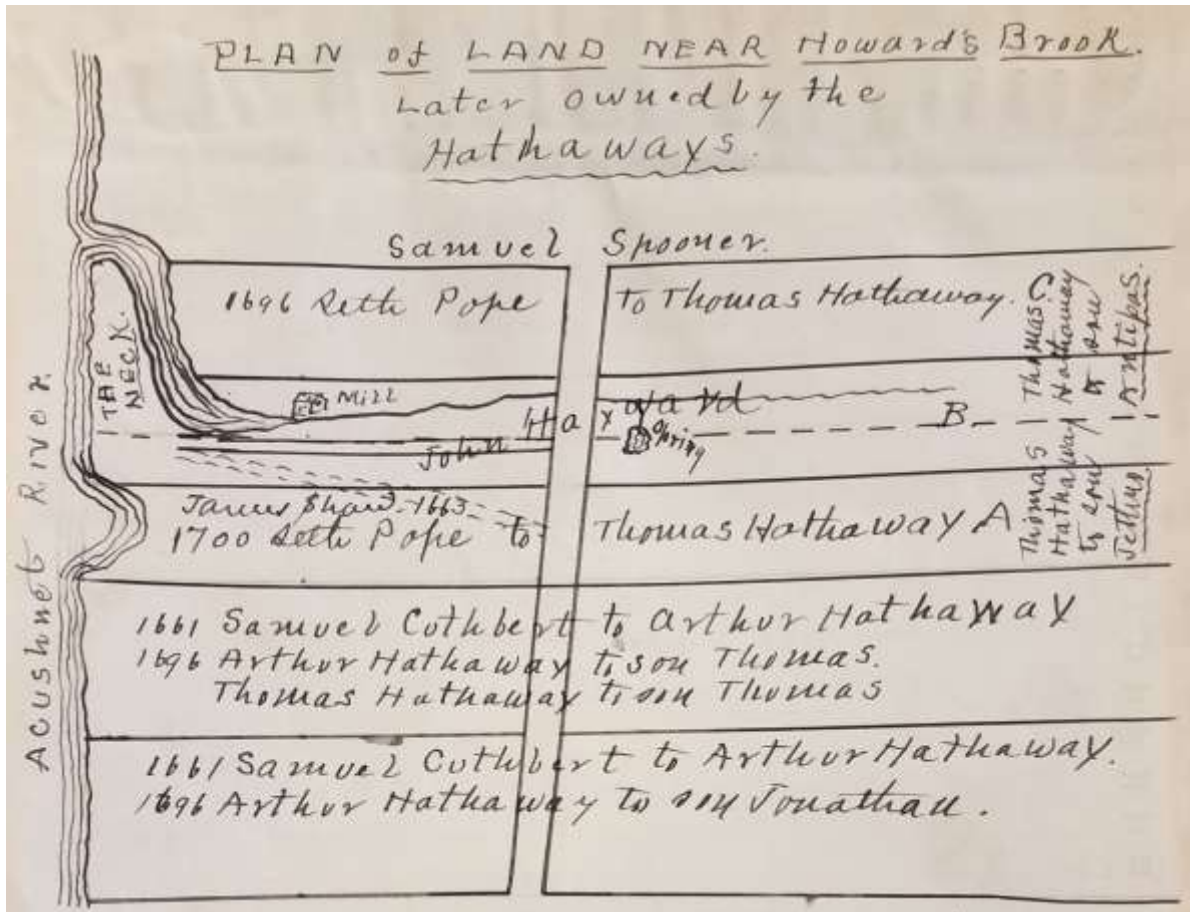 PLAN of LAND NEAR Howard's Brook.
Later owned by the
Hathaways.
Samuel Spooner.
1696 Seth Pope to Thomas Hathaway. C
Thomas Hathaway to son Antipas.
THE NECK.
Mill
John Haward B
Spring
James Shaw 1663
1700 Seth Pope to Thomas Hathaway A
Thomas Hathaway to son Jethro
Acushnet River
1661 Samuel Cuthbert to Arthur Hathaway
1696 Arthur Hathaway to son Thomas.
Thomas Hathaway to son Thomas
1661 Samuel Cuthbert to Arthur Hathaway.
1696 Arthur Hathaway to son Jonathan.